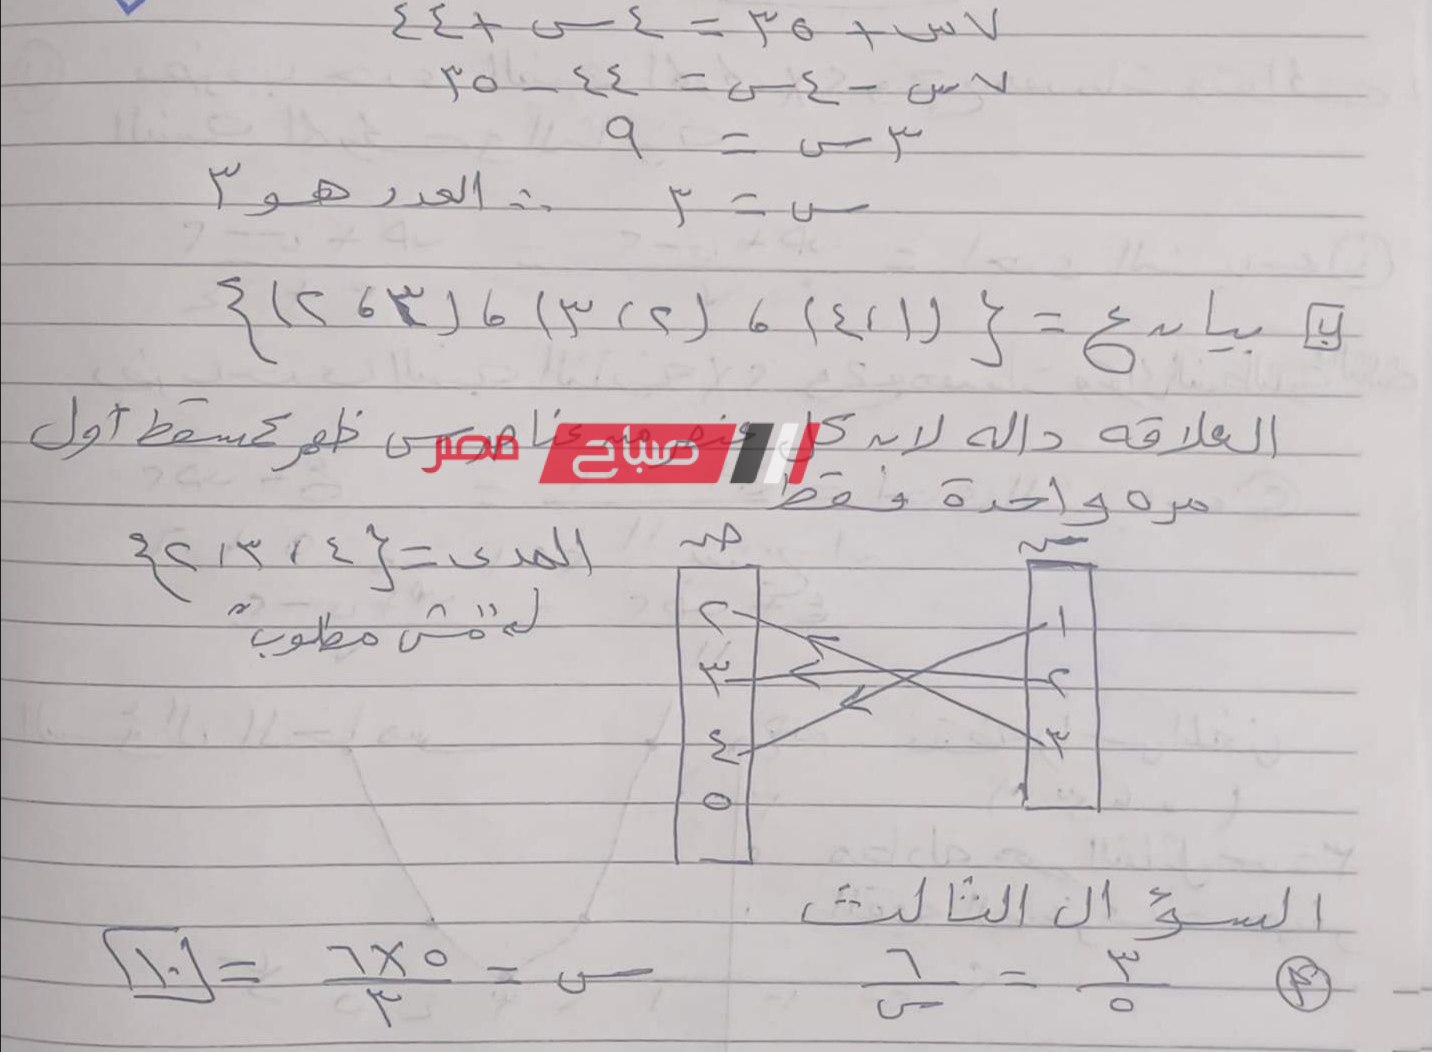 ٧س + ٣٥ = ٤س + ٤٤
٧س - ٤س = ٤٤ - ٣٥
٣س = ٩
س = ٣ ∴ العدد هو ٣
ب بيان ع = {(١، ٤) ، (٢، ٣) ، (٣، ٢)}
العلاقة دالة لان كل عنصر من عناصر س ظهر كمسقط أول
صباح مصر
مرة واحدة فقط
المدى = {٤، ٣، ٢}
"مش مطلوب"
س ص
١ ٢
٢ ٣
٣ ٤
٥
السؤال الثالث
٣/٥ = ٦/س س = ٥×٦/٣ = ١٠